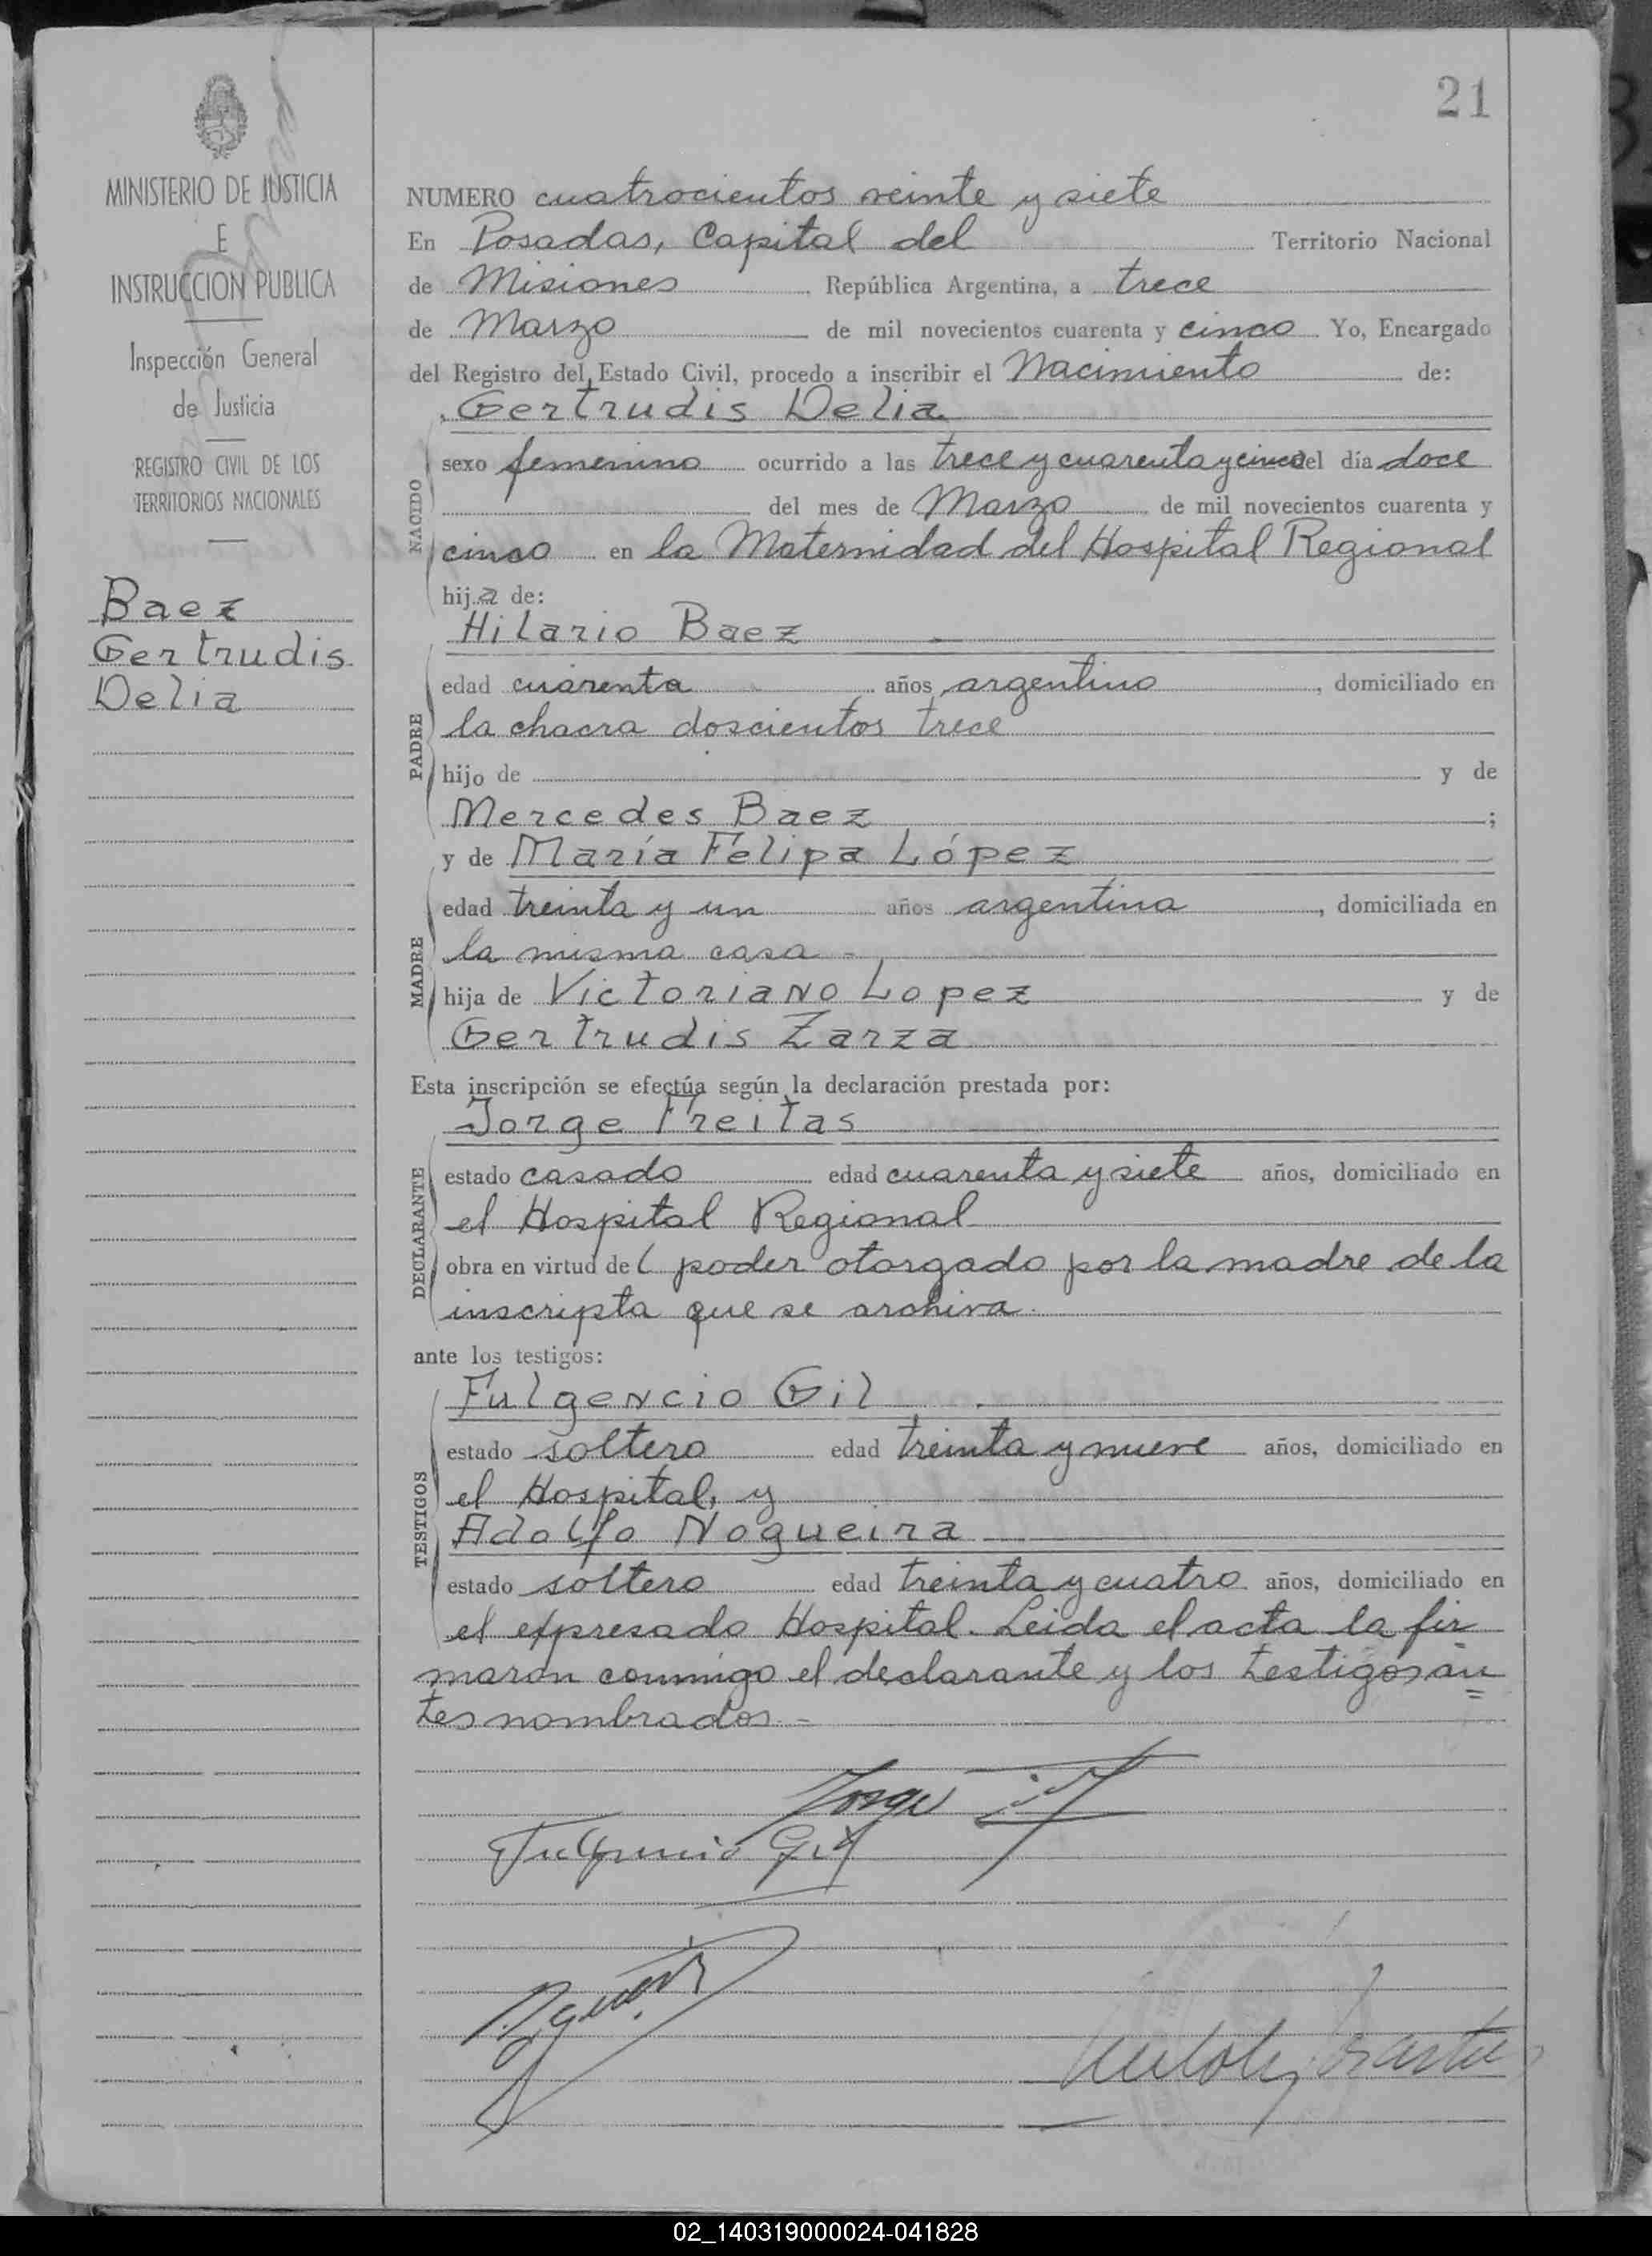 21
MINISTERIO DE JUSTICIA
E
INSTRUCCION PUBLICA
Inspección General
de Justicia
REGISTRO CIVIL DE LOS
TERRITORIOS NACIONALES
Baez
Gertrudis
Delia
NUMERO cuatrocientos veinte y siete
En Posadas, Capital del Territorio Nacional
de Misiones República Argentina, a trece
de Marzo de mil novecientos cuarenta y cinco Yo, Encargado
del Registro del Estado Civil, procedo a inscribir el Nacimiento de:
Gertrudis Delia
NACIDO
sexo femenino ocurrido a las trece y cuarenta y cinco del día doce
del mes de Marzo de mil novecientos cuarenta y
cinco en la Maternidad del Hospital Regional
hija de:
Hilario Baez
PADRE
edad cuarenta años argentino, domiciliado en
la chacra doscientos trece
hijo de y de
Mercedes Baez ;
y de María Felipa López
MADRE
edad treinta y un años argentina, domiciliada en
la misma casa -
hija de Victoriano Lopez y de
Gertrudis Zarza
Esta inscripción se efectúa según la declaración prestada por:
Jorge Freitas
DECLARANTE
estado casado edad cuarenta y siete años, domiciliado en
el Hospital Regional
obra en virtud del poder otorgado por la madre de la
inscripta que se archiva.
ante los testigos:
Fulgencio Gil
TESTIGOS
estado soltero edad treinta y nueve años, domiciliado en
el Hospital, y
Adolfo Nogueira
estado soltero edad treinta y cuatro años, domiciliado en
el expresado Hospital. Leida el acta la fir
maron conmigo el declarante y los testigos an
tes nombrados.-
Jorge
Fulgencio Gil
02_140319000024-041828